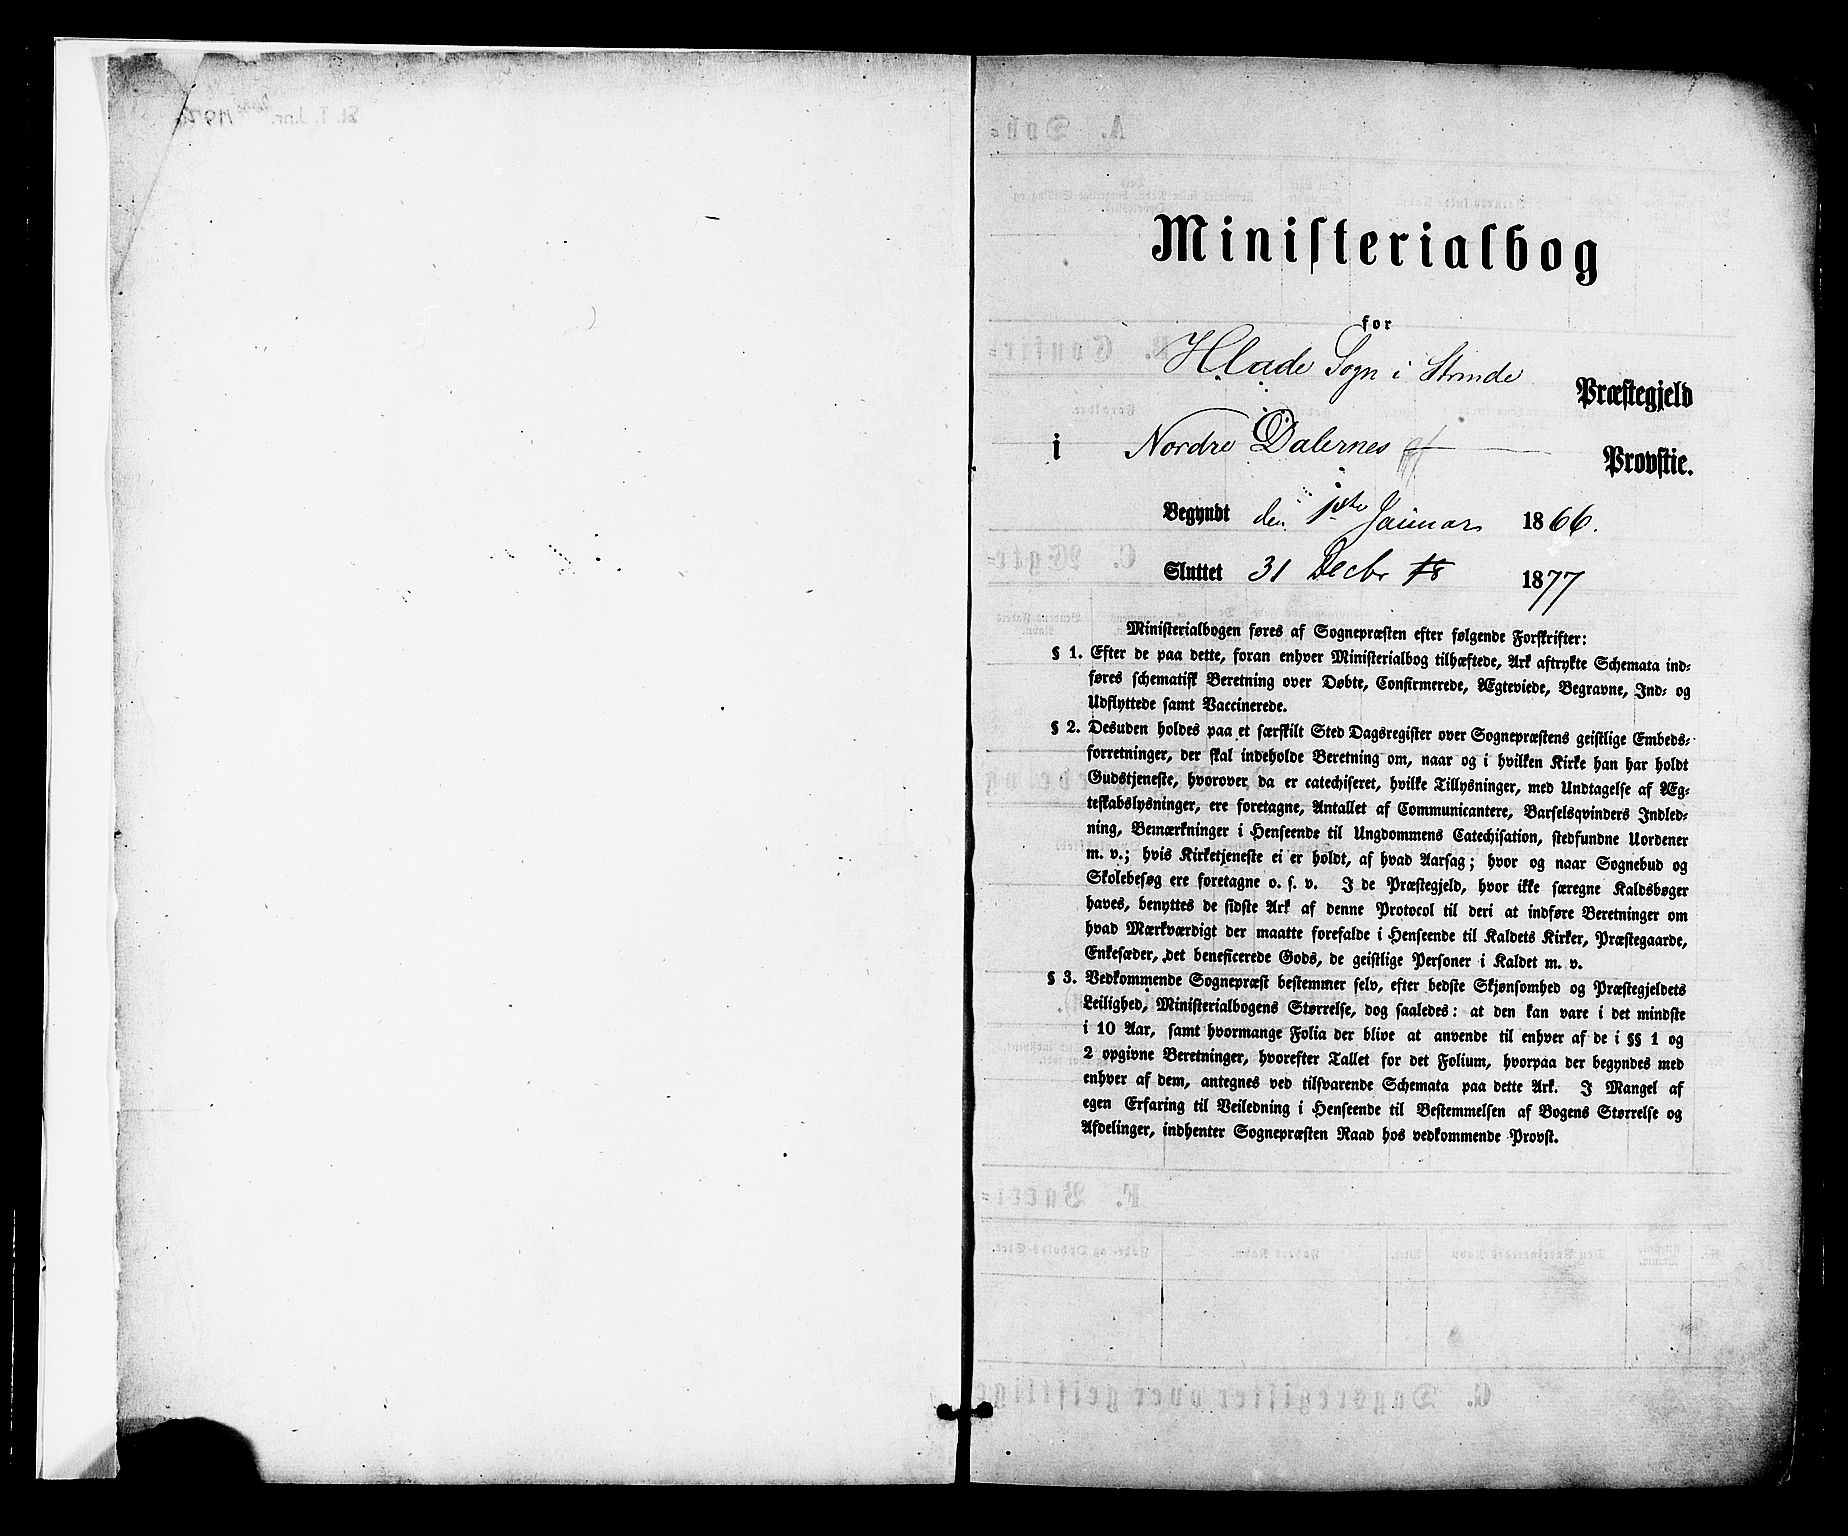 Ministerialbog
for
Hlade Sogn i Strinde Præstegjeld
i Nordre Dalernes Provstie.
Begyndt den 1ste Januar 1866.
Sluttet 31 Decbr 18 1877
Ministerialbogen føres af Sognepræsten efter følgende Forskrifter:
§ 1. Efter de paa dette, foran enhver Ministerialbog tilhæftede, Ark aftrykte Schemata ind=
føres schematisk Beretning over Døbte, Confirmerede, Ægteviede, Begravne, Ind= og
Udflyttede samt Vaccinerede.
§ 2. Desuden holdes paa et særskilt Sted Dagsregister over Sognepræstens geistlige Embeds=
forretninger, der skal indeholde Beretning om, naar og i hvilken Kirke han har holdt
Gudstjeneste, hvorover da er catechiseret, hvilke Tillysninger, med Undtagelse af Æg=
teskabslysninger, ere foretagne, Antallet af Communicantere, Barselsqvinders Indled=
ning, Bemærkninger i Henseende til Ungdommens Catechisation, stedfundne Uordener
m. v.; hvis Kirketjeneste ei er holdt, af hvad Aarsag; hvor og naar Sognebud og
Skolebesøg ere foretagne o. s. v. I de Præstegjeld, hvor ikke særegne Kaldsbøger
haves, benyttes de sidste Ark af denne Protocol til deri at indføre Beretninger om
hvad Mærkværdigt der maatte forefalde i Henseende til Kaldets Kirker, Præstegaarde,
Enkesæder, det beneficerede Gods, de geistlige Personer i Kaldet m. v.
§ 3. Vedkommende Sognepræst bestemmer selv, efter bedste Skjønsomhed og Præstegjeldets
Leilighed, Ministerialbogens Størrelse, dog saaledes: at den kan vare i det mindste
i 10 Aar, samt hvormange Folia der blive at anvende til enhver af de i §§ 1 og
2 opgivne Beretninger, hvorefter Tallet for det Folium, hvorpaa der begyndes med
enhver af dem, antegnes ved tilsvarende Schemata paa dette Ark. I Mangel af
egen Erfaring til Veiledning i Henseende til Bestemmelsen af Bogens Størrelse og
Afdelinger, indhenter Sognepræsten Raad hos vedkommende Provst.